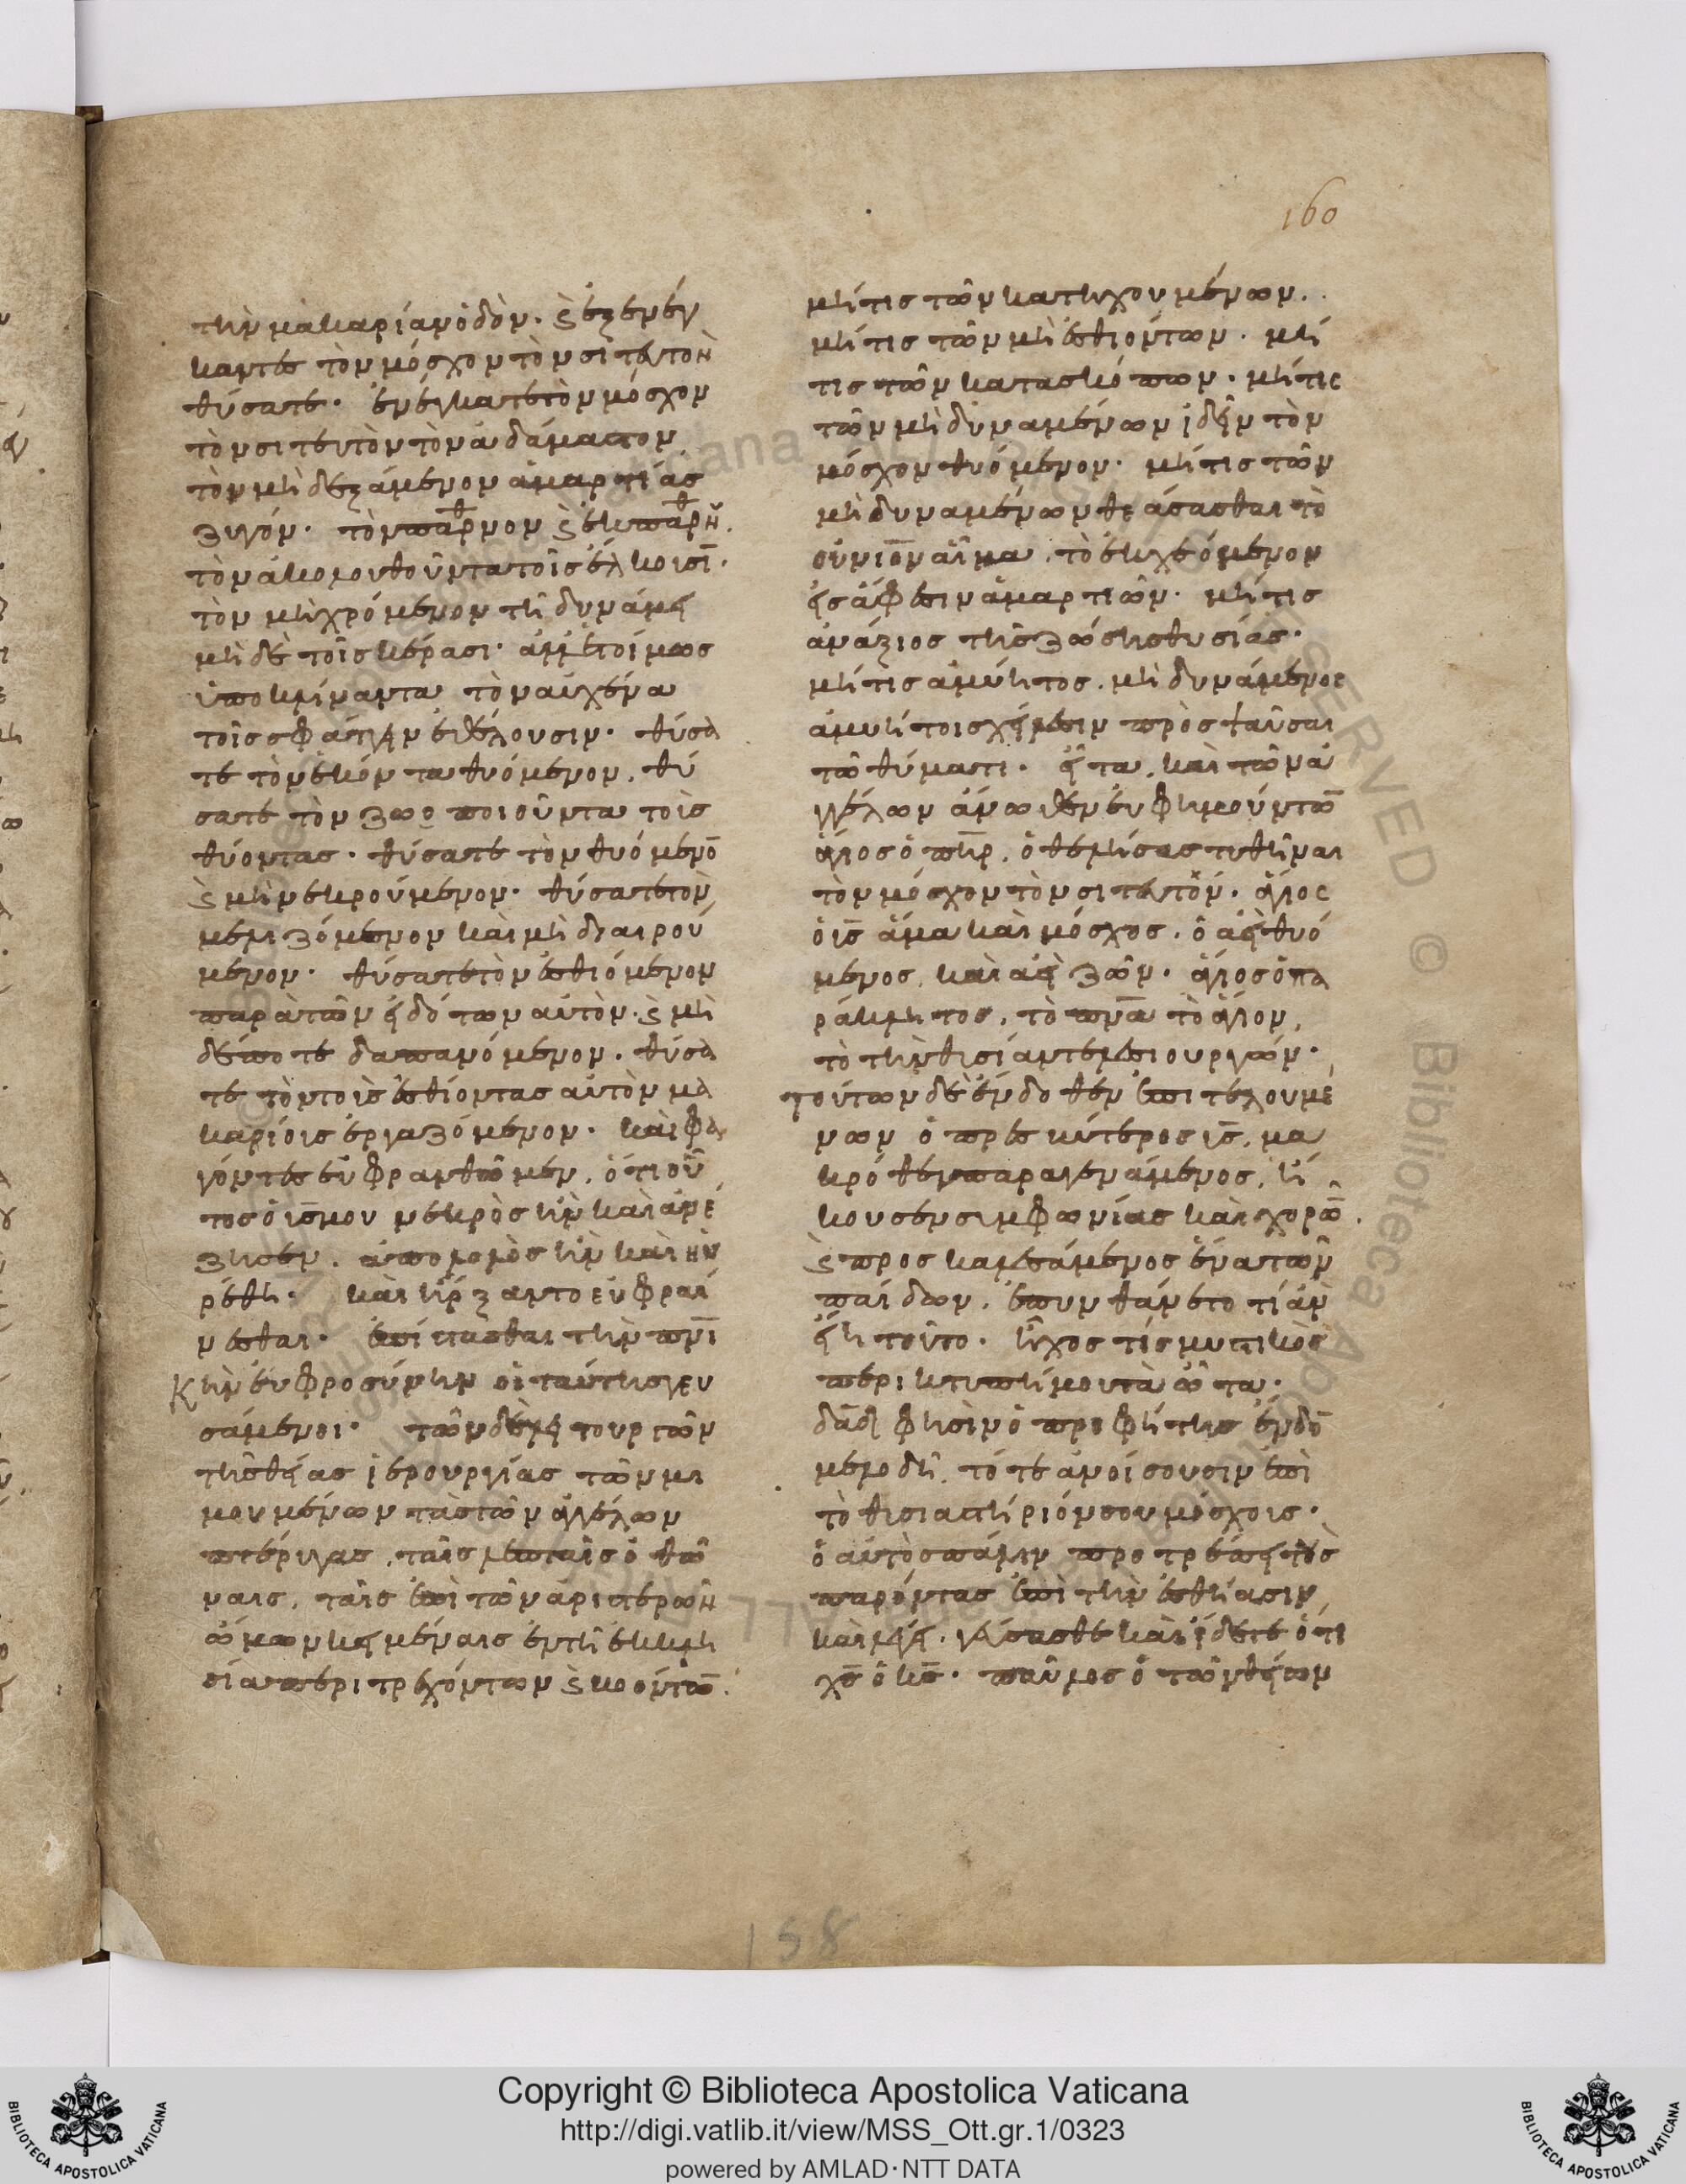 160
τὴν μακαρίαν ὁδόν· ϗ ἐξενέγ
καντες τὸν μόσχον τὸν σιτευτὸν
θύσατε· ἐνέγκατε τὸν μόσχον
τὸν σιτευτὸν τὸν ἀδάμαστον
τὸν μὴ δεξάμενον ἁμαρτίας
ζυγόν· τὸν παρθένον ϗ ἐκ παρθένου
τὸν ἀκολουθοῦντα τοῖς ἕλκουσῑ·
τὸν μὴ χρόμενον τῆ δυνάμει
μὴ δὲ τοῖς κέρασι· ἀλλ' ἑτοίμως
ὑποκλίναντα τὸν αὐχένα
τοῖς σφάττειν ἐθέλουσιν· θύσα
τε τὸν ἑκόντα θυόμενον, θύ
σατε τὸν ζωοποιοῦντα τοὺς
θύοντας· θύσατε τὸν θυόμενο̄
ϗ μὴ νεκρούμενον· θύσατε τὸν
μελιζόμενον καὶ μὴ διαιρού
μενον· θύσατε τὸν ἐσθιόμενον
παρὰ τῶν εἰδότων αὐτόν· ϗ μὴ
δέποτε δαπανόμενον· θύσα
τε τὸν τοὺς ἐσθίοντας αὐτὸν μα
καρίους ἐργαζόμενον· καὶ φα
γόντες εὐφρανθῶμεν, ὅτι οὗ
τος ὁ ῡς μου νεκρὸς ἦν καὶ ἀνέ
ζησεν, ἀπολωλὸς ἦν καὶ ηὑ
ρέθη· καὶ ἤρξαντο εὐφραί
νεσθαι· ἐπίστασθαι τὴν πνῑ
κὴν εὐφροσύνην οἱ ταύτης γευ
σάμενοι· τῶν δὲ λειτουργῶν
τῆς θείας ἱερουργίας τῶν μι
μουμένων τὰς τῶν ἀγγέλων
πτέρυγας, ταῖς λεπταῖς ὀθό
ναις, ταῖς ἐπὶ τῶν ἀριστερῶν
ὤμων κειμέναις ἐν τῆ ἐκκλη
σία περιτρεχόντων ϗ βοόντω̄·
μήτις τῶν κατηχουμένων·
μήτις τῶν μὴ ἐσθιόντων· μή
τις τῶν κατασκόπων· μήτις
τῶν μὴ δυναμένων ἰδεῖν τὸν
μόσχον θυόμενον· μήτις τῶν
μὴ δυναμένων θεάσασθαι τὸ
οὐνιο̄ν αἷμα, τὸ ἐκχεόμενον
εἰς ἄφεσιν ἁμαρτιῶν· μήτις
ἀνάξιος τῆς ζώσης θυσίας·
μήτις ἀμύητος, μὴ δυνάμενος
ἀμυήτοις χείλεσιν προσψαῦσαι
τῶ θύματι· εἶτα, καὶ τῶν ἀγ
γέλων ἄνωθεν εὐφημούντω̄
ἅγιος ὁ π̄ηρ, ὁ θελήσας τυθῆναι
τὸν μόσχον τὸν σιτευτόν· ἅγιος
ὁ ῡς ἅμα καὶ μόσχος, ὁ ἀεὶ θυό
μενος, καὶ ἀεὶ ζῶν· ἅγιος ὁ πα
ράκλητος, τὸ πνᾱ τὸ ἅγιον,
τὸ τὴν θυσίαν τελεσιουργῶν·
τούτων δὲ ἔνδοθεν ἐπιτελουμέ
νων ὁ πρεσβύτερος ῡς, μα
κρόθεν παραγενάμενος, ἤ
κουσεν συμφωνίας καὶ χορῶ̄·
ϗ προσκαλεσάμενος ἕνα τῶν
παίδων, ἐπυνθάνετο τί ἂν
εἴη τοῦτο· ἦχος τίς μυστικὸς
περικτυπεῖ μου τὰ ὦτα·
δᾱδ φησὶν ὁ προφήτης ἔνδο̄
μελωδεῖ, τότε ἀνοίσουσιν ἐπὶ
τὸ θυσιαστήριόν σου μόσχους·
ὁ αὐτὸς πάλιν προτρέπει τοὺς
παρόντας ἐπὶ τὴν ἑστίασιν
καὶ λέγει, γεύσασθε καὶ ἴδετε ὅτι
χ̄ς ὁ κ̄ς· παῦλος ὁ τῶν θείων
158
Copyright © Biblioteca Apostolica Vaticana
http://digi.vatlib.it/view/MSS_Ott.gr.1/0323
powered by AMLAD·NTT DATA
BIBLIOTECA APOSTOLICA VATICANA
BIBLIOTECA APOSTOLICA VATICANA